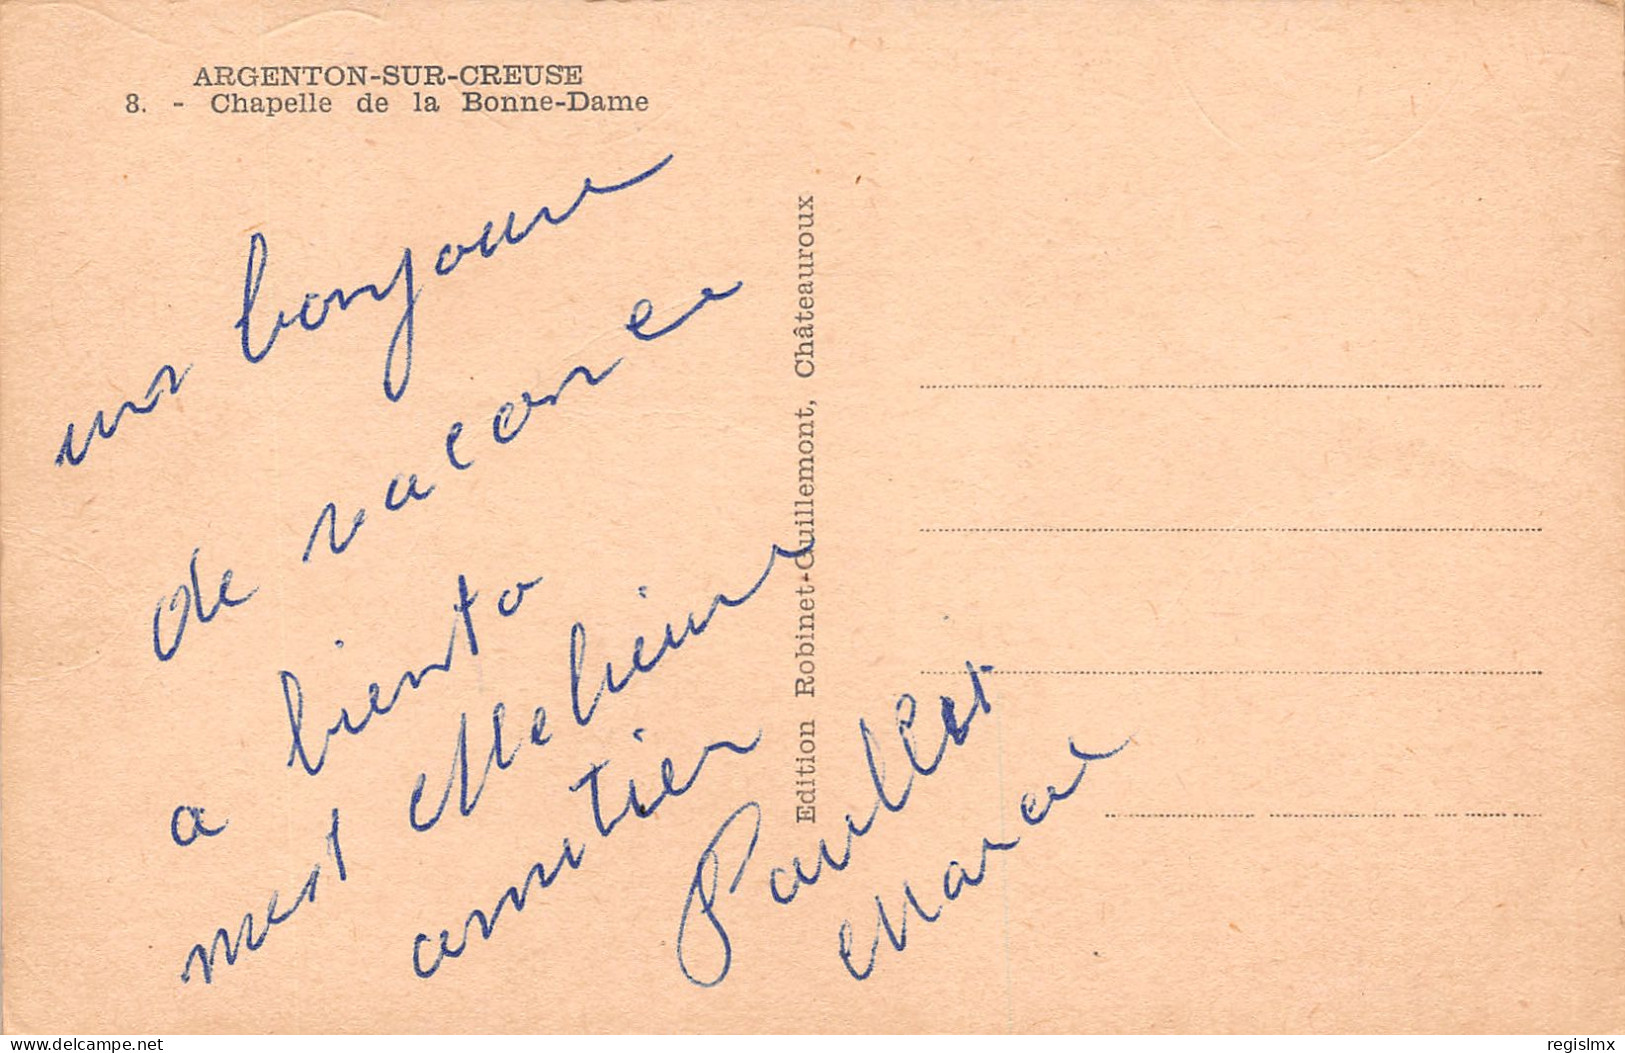 ARGENTON-SUR-CREUSE
8. - Chapelle de la Bonne-Dame
un bonjoure
de vacance
a biento
mest Melieur
amitier
Paul et
Marcel
Edition Robinet-Guillemont, Châteauroux
delcampe.net
regislmx